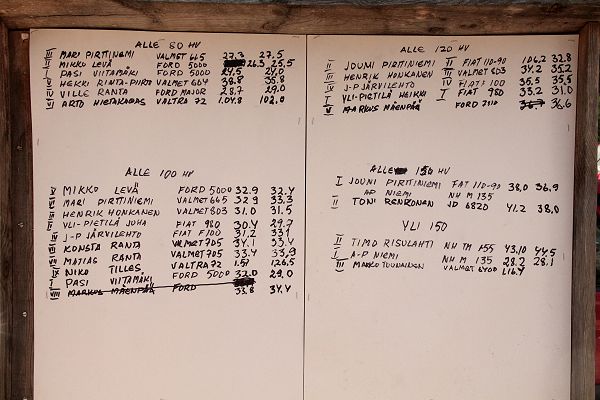 ALLE 80 HV
III MARI PIRTTINIEMI VALMET 665 27,3 27,5
II MIKKO LEVÄ FORD 5000 26,3 25,5
I PASI VIITAMÄKI FORD 5000 24,5 24,0
V HEKKI RINTA-PIIRTO VALMET 604 38,8 35,8
IV VILLE RANTA FORD MAJOR 28,7 29,0
VI ARTO HIETAKANGAS VALTRA 72 1.04,8 102,0
ALLE 100 HV
MIKKO LEVÄ FORD 5000 32,9 32,4
MARI PIRTTINIEMI VALMET 665 32,9 33,3
HENRIK HONKANEN VALMET 803 31,0 31,5
YLI-PIETILÄ JUHA FIAT 980 30,4 29,7
J-P JÄRVILEHTO FIAT F100 31,2 33,1
KONSTA RANTA VALMET 705 34,1 33,4
MATIAS RANTA VALMET 705 33,4 33,9
NIKO TILLES VALTRA 72 1.51 126,5
PASI VIITAMÄKI FORD 5000 32,0 29,0
VIII MARKUS MÄENPÄÄ FORD 33,8 34,4
ALLE 120 HV
II JOUNI PIRTTINIEMI FIAT 110-90 106,2 32,8
III HENRIK HONKANEN VALMET 803 34,2 35,2
IV J-P JÄRVILEHTO FIAT F100 35,5 35,5
I YLI-PIETILÄ HEIKKI I FIAT 980 33,2 31,0
V MARKUS MÄENPÄÄ FORD 7110 36,6
ALLE 150 HV
I JOUNI PIRTTINIEMI FIAT 110-90 38,0 36,9
A-P NIEMI NH M 135
II TONI RENKONEN JD 6820 41,2 38,0
YLI 150
II TIMO RISULAHTI NH TM 155 43,10 44,5
I A-P NIEMI NH M 135 28,2 28,1
III MARKO TUUNAINEN VALMET 6400 1.16,4